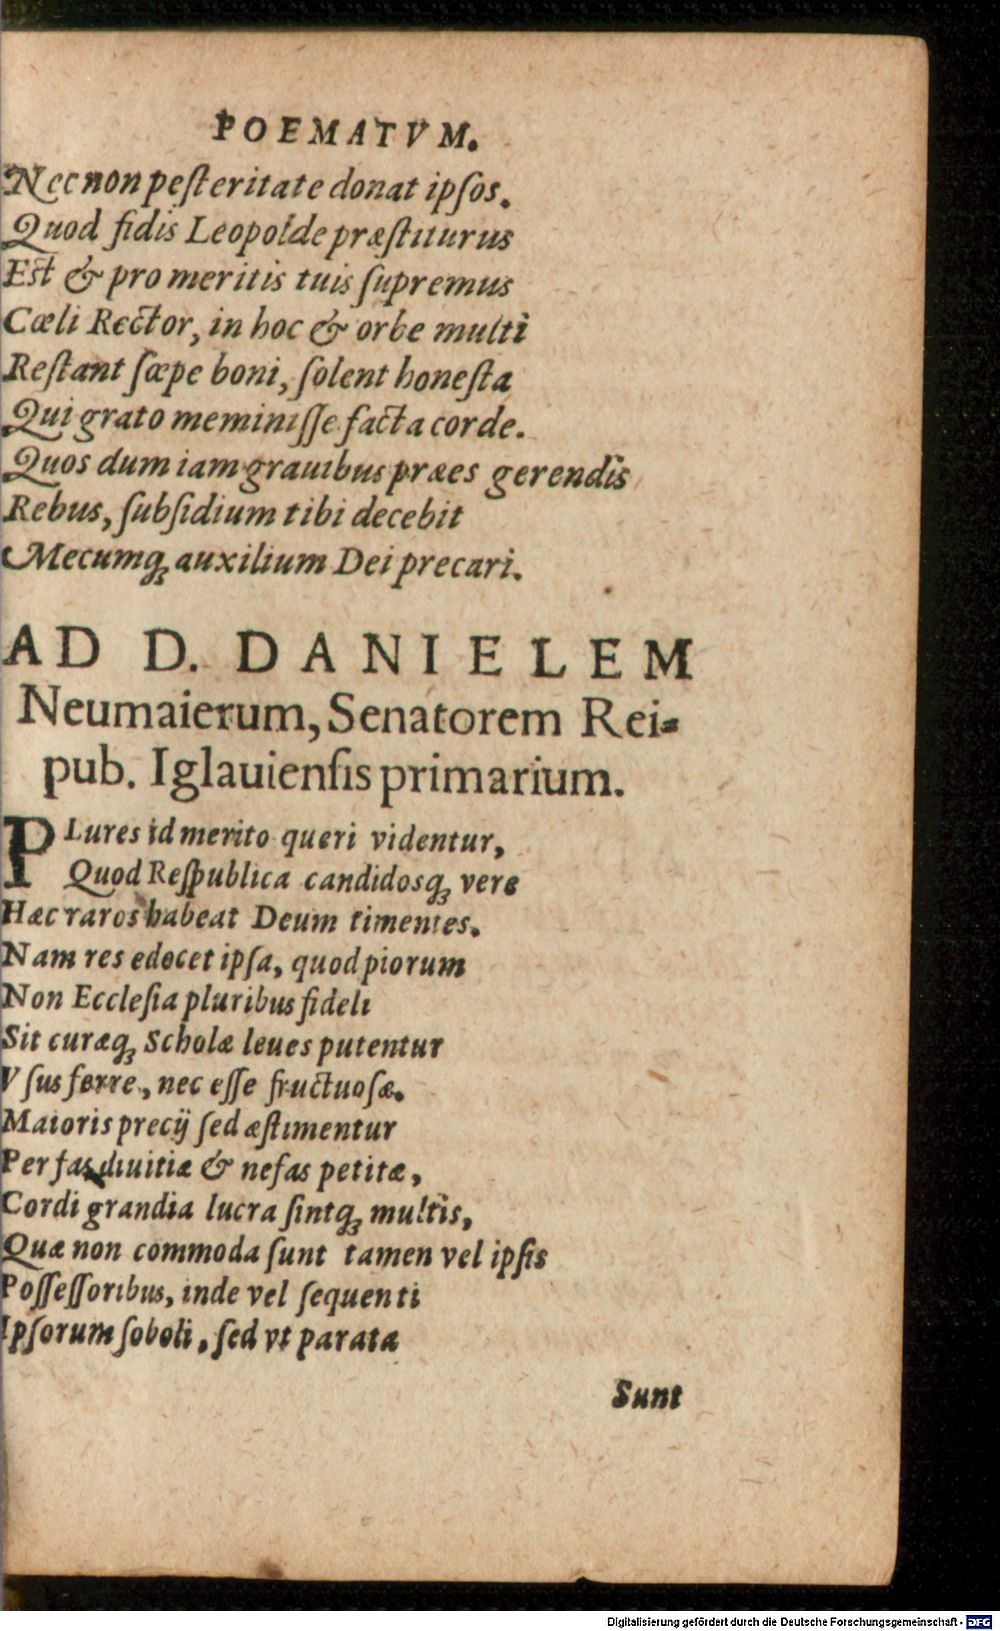 POEMATVM.
Nec non pesteritate donat ipsos.
Quod fidis Leopolde præstiturus
Est & pro meritis tuis supremus
Cœli Rector, in hoc & orbe multi
Restant sæpe boni, solent honesta
Qui grato meminisse facta corde.
Quos dum iam grauibus præes gerendis
Rebus, subsidium tibi decebit
Mecumq; auxilium Dei precari.
AD D. DANIELEM
Neumaierum, Senatorem Rei-
pub. Iglauiensis primarium.
PLures id merito queri videntur,
Quod Respublica candidosq; vere
Hæc raros habeat Deum timentes.
Nam res edocet ipsa, quod piorum
Non Ecclesia pluribus fideli
Sit curæq; Scholæ leues putentur
Vsus ferre, nec esse fructuosæ.
Maioris precij sed æstimentur
Per fas diuitiæ & nefas petitæ,
Cordi grandia lucra sintq; multis,
Quæ non commoda sunt tamen vel ipsis
Possessoribus, inde vel sequenti
Ipsorum soboli, sed vt parata
Sunt
Digitalisierung gefördert durch die Deutsche Forschungsgemeinschaft - DFG